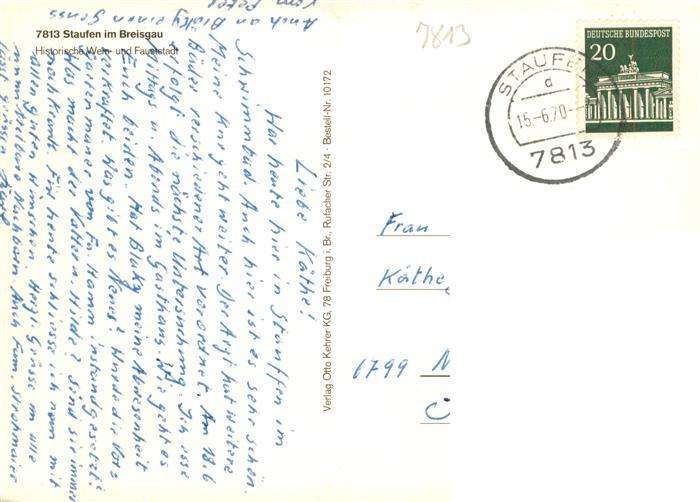 7813 Staufen im Breisgau
Historische Wein- und Fauststadt
7813
DEUTSCHE BUNDESPOST
20
STAUFEN
d
15.-6.70.-
7813
Verlag Otto Kehrer KG, 78 Freiburg i. Br., Rufacher Str. 2/4 · Bestell-Nr. 10172
Liebe Käthe!
Bin heute hier in Stauffen im
Schwimmbad. Auch hier ist es sehr schön.
Meine Kur geht weiter Der Arzt hat weitere
Bäder verschiedener Art verordnet. Am 18.6
erfolgt die nächste Untersuchung. Ich esse
Mittags u. Abends im Gasthaus. Wie geht es
Euch beiden. Hat Blaky meine Abwesenheit
Was gibt es Neues? Wurde die
von Fr. Hamm instandgesetzt?
Was macht der Kater u. Hilde? Sind sie immer
noch krank. Für heute schliesse ich nun mit
allen guten Wünschen. Herzl. Grüsse an alle
Nachbarn. Auch Fam. Strohmaier
lässt grüssen
Auch an Blaky einen Gruss
vom Peter
Frau
Käthe
6799